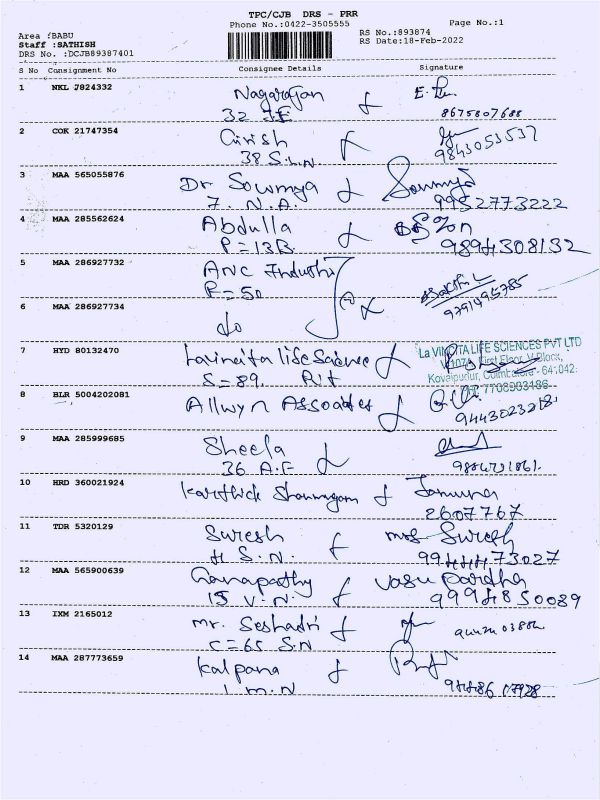 TPC/CJB DRS - PRR
Phone No.:0422-3505555
Page No.:1
Area :BABU
Staff :SATHISH
DRS No. :DCJB89387401
RS No.:893874
RS Date:18-Feb-2022
S No Consignment No Consignee Details Signature
1 NKL 7824332 Nagarajan
32 8675807688
2 COK 21747354 Girish
38 S.L.N 9843053537
3 MAA 565055876 Dr Sowmya Sowmya
7. N.A. 9952773222
4 MAA 285562624 Abdulla
P=13B 9894308132
5 MAA 286927732 ANC Industri
F=50 9791495785
6 MAA 286927734 do
7 HYD 80132470 Lavincita life Science
S=89.
La VINCITA LIFE SCIENCES PVT LTD
First Floor, V Block,
Kovaipudur, Coimbatore - 641 042.
7708903186
8 BLR 5004202081 Allwyn Associates
9 MAA 285999685 Sheela
36 A.F
10 HRD 360021924 Karthick Shanmugam Jamuna
2607767
11 TDR 5320129 Suresh mrs Suresh
4 S.N. 9944473027
12 MAA 565900639 Ganapathy Vasu pardha
15 V.N. 9994850089
13 IXM 2165012 mr. Seshadri
C=65 S.N
14 MAA 287773659 Kalpana
1 M.N